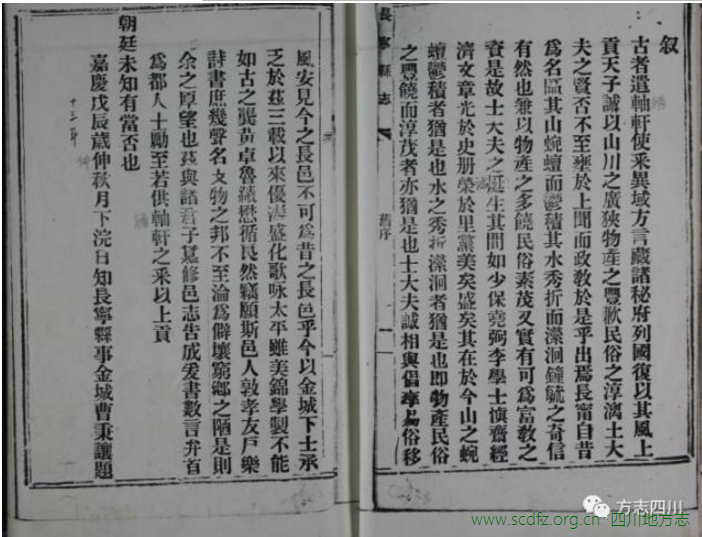 叙
古者遣輶軒使采異域方言藏諸秘府列國復以其風上
貢天子誠以山川之廣狹物產之豐歉民俗之淳漓士大
夫之賢否不至壅於上聞而政敎於是乎出焉長甯自昔
爲名區其山蜿蟺而鬱積其水秀折而瀠洄鐘毓之奇信
有然也兼以物產之多饒民俗素茂叉實有可爲富敎之
資是故士大夫之挺生其間如少保堯弼李學士慎齋經
濟文章光於史册榮於里黨美矣盛矣其在於今山之蜿
蟺鬱積者猶是也水之秀折瀠洄者猶是也即物產民俗
之豐饒而淳茂者亦猶是也士大夫誠相與倡率易俗移
長寧縣志
舊序
一
風安見今之長邑不可爲昔之長邑乎今以金城下士承
乏於茲三載以來優游盛化歌咏太平雖美錦學製不能
如古之龔黄卓魯績懋循良然竊願斯邑人敦孝友戸樂
詩書庶幾聲名文物之邦不至淪爲僻壤窮鄉之陋是則
余之厚望也茲與諸君子纂修邑志告成爰書數言弁首
爲都人士勵至若供輶軒之采以上貢
朝廷未知有當否也
嘉慶戊辰歲仲秋月下浣日知長寧縣事金城曹秉讓題
十三年
方志四川
www.scdfz.org.cn 四川地方志